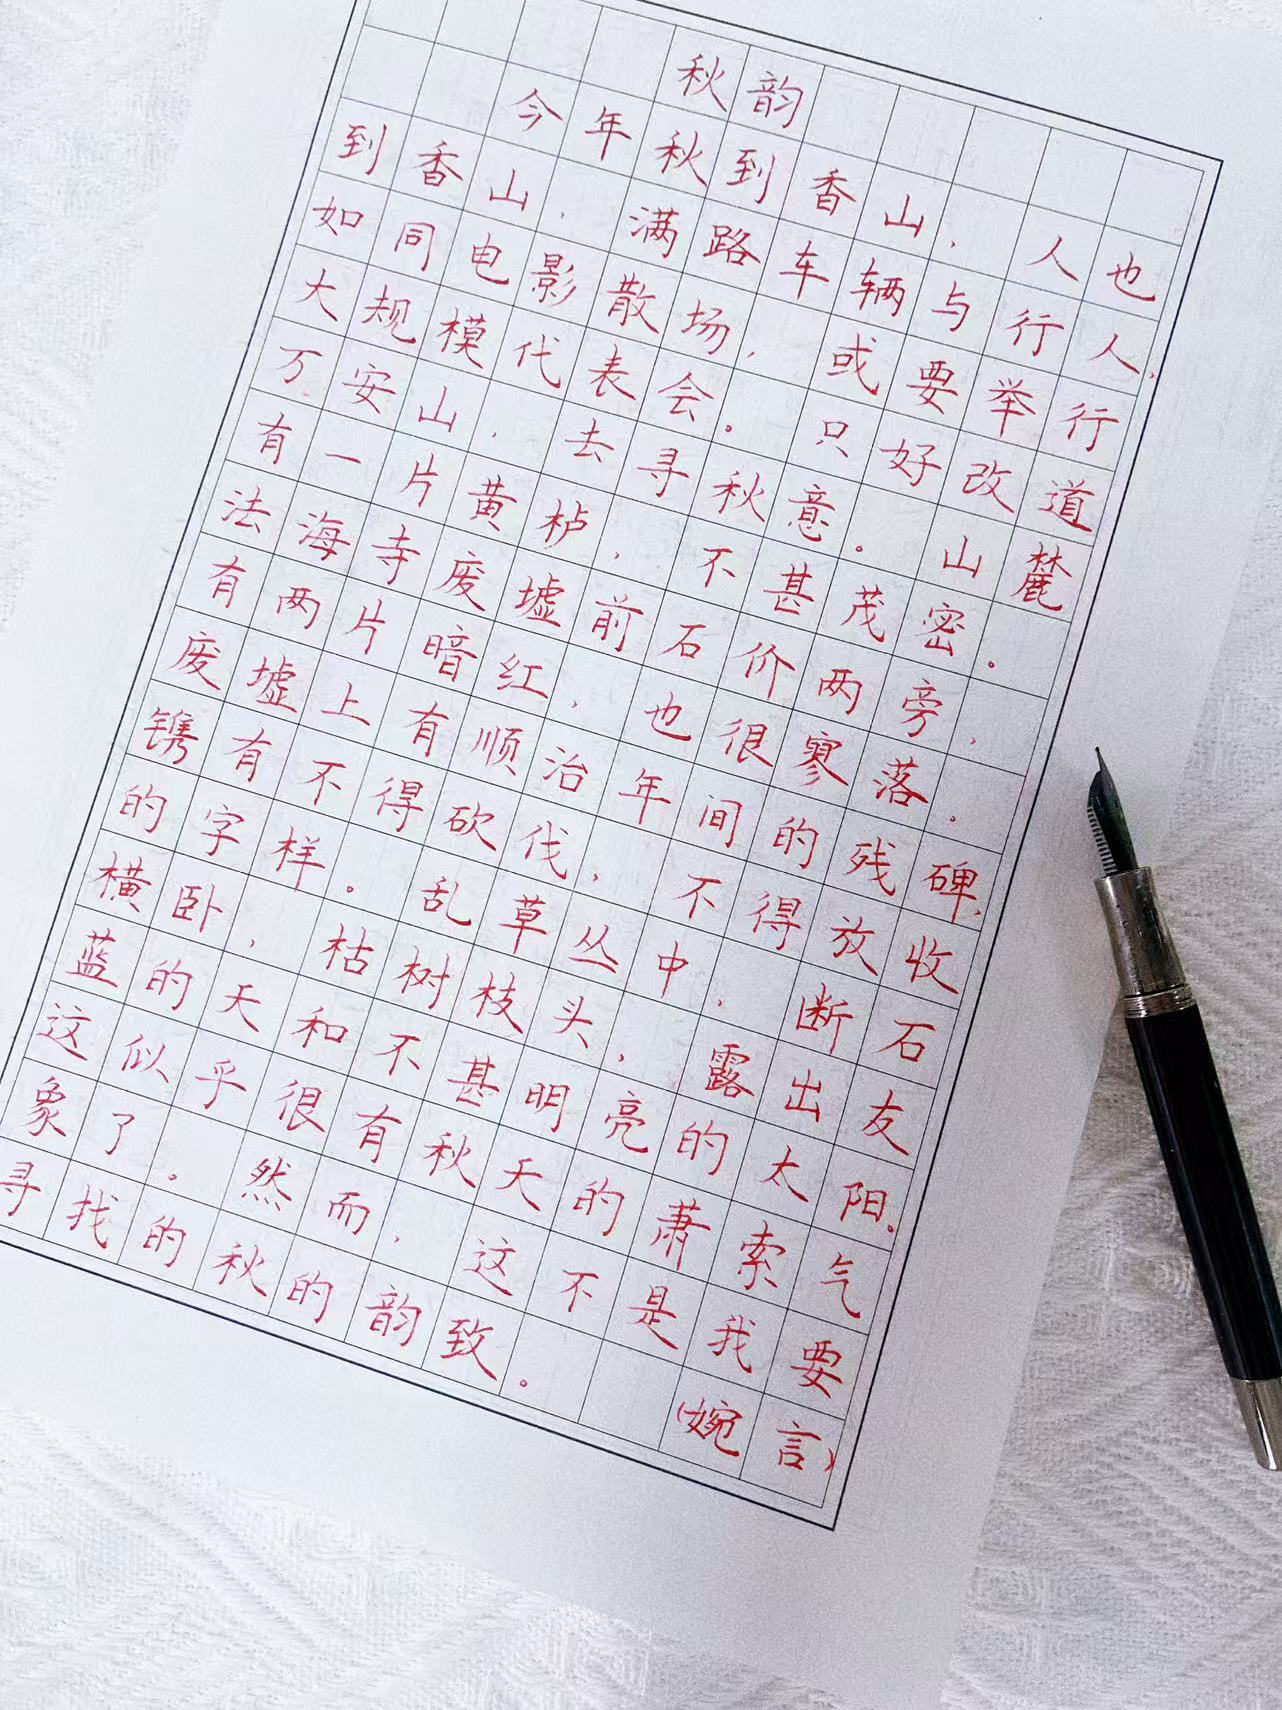 秋韵
今年秋到香山,人也
到香山,满路车辆与行人,
如同电影散场,或要举行
大规模代表会。只好改道
万安山,去寻秋意。山麓
有一片黄栌,不甚茂密。
法海寺废墟前石价两旁,
有两片暗红,也很寥落.
废墟上有顺治年间的残碑,
镌有不得砍伐,不得放收
的字样。乱草丛中,断石
横卧,枯树枝头,露出友
蓝的天和不甚明亮的太阳。
这似乎很有秋天的萧索气
象了。然而,这不是我要
寻找的秋的韵致。
(婉言)